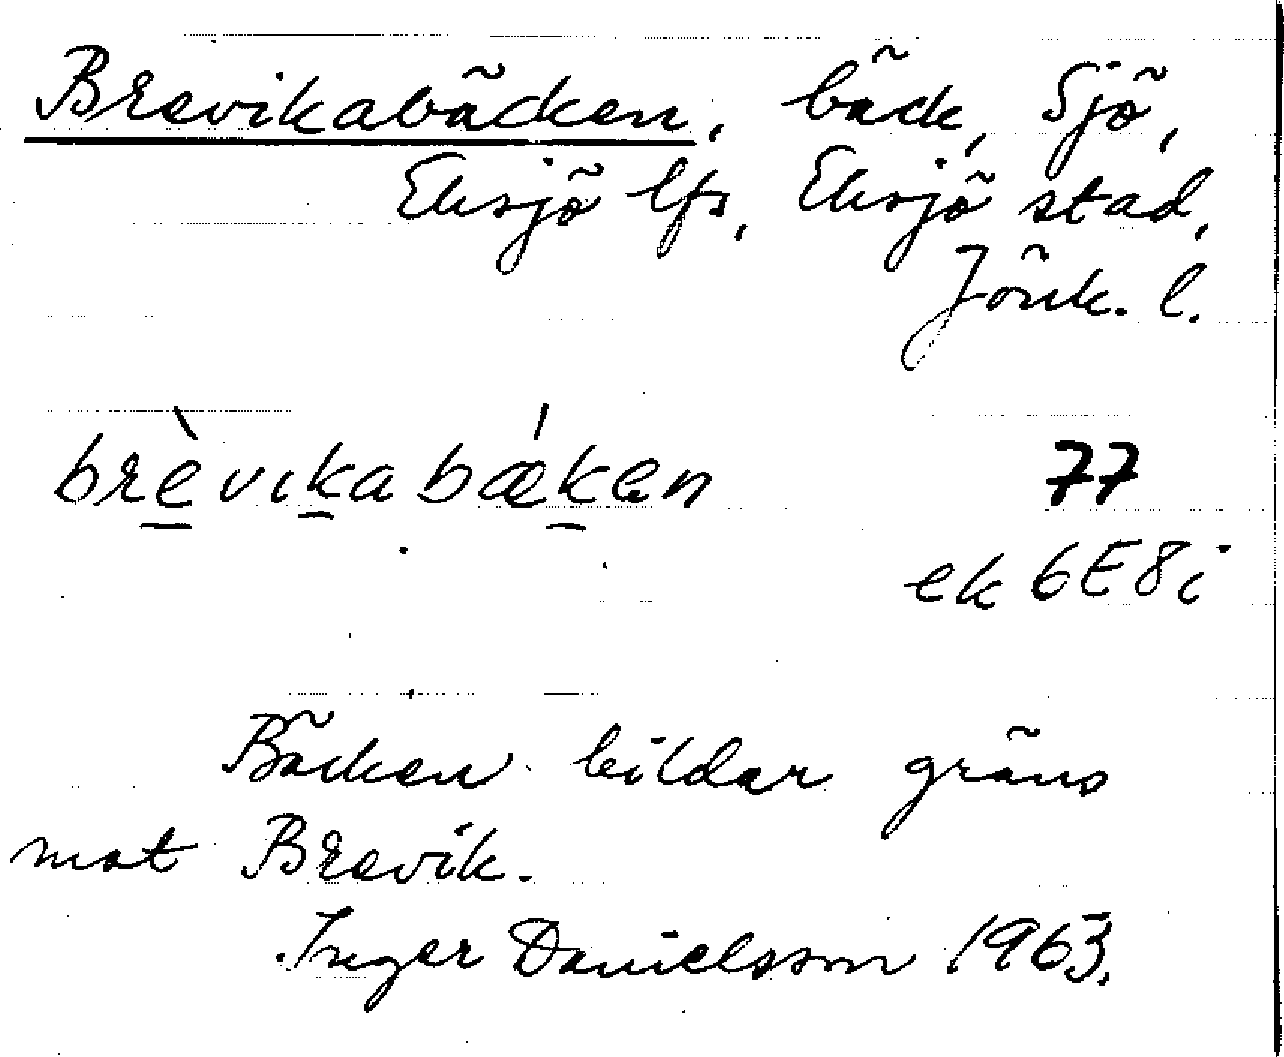 Brevikabäcken, bäck, Sjö,
Eksjö lfs, Eksjö stad,
Jönk. l.
brèvikabǽken 77
ek 6E8i
Bäcken bildar gräns
mot Brevik.
Inger Danielsson 1963.